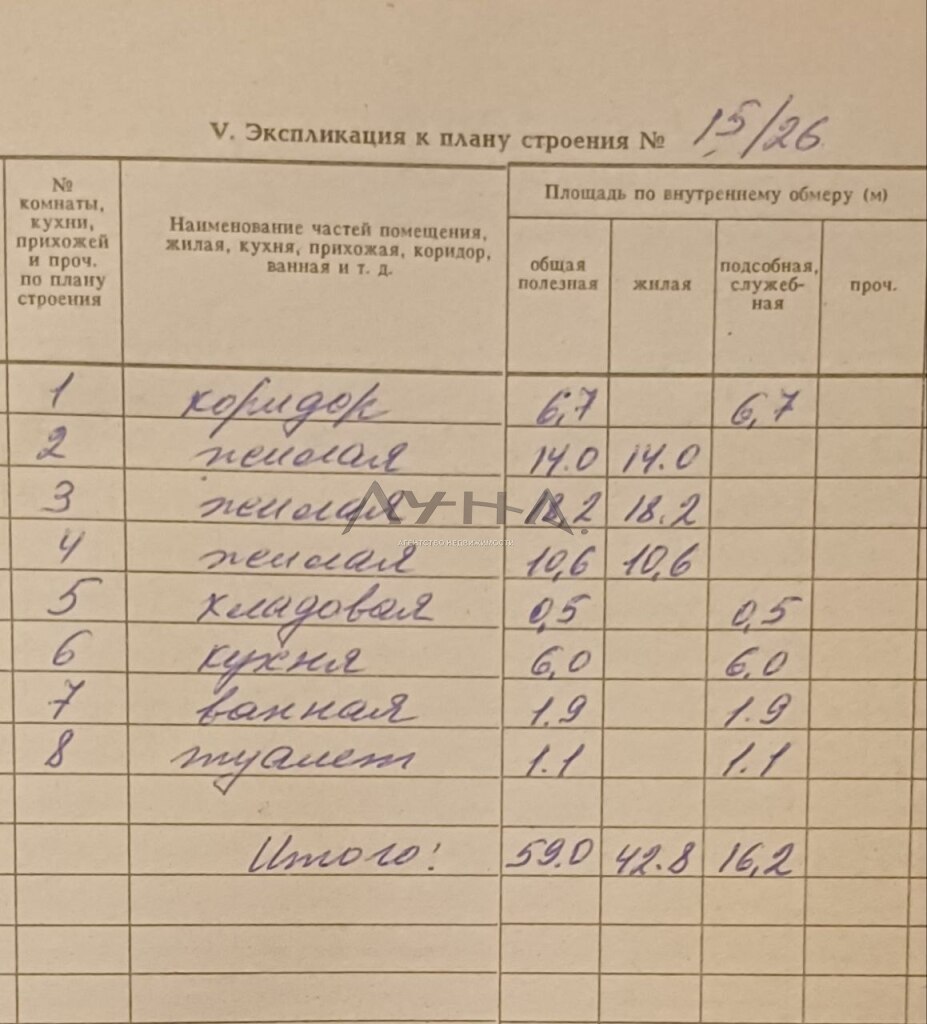 V. Экспликация к плану строения № 15/26
№ комнаты, кухни, прихожей и проч. по плану строения
Наименование частей помещения, жилая, кухня, прихожая, коридор, ванная и т. д.
Площадь по внутреннему обмеру (м)
общая полезная
жилая
подсобная, служебная
проч.
1 коридор 6,7 6,7
2 жилая 14.0 14.0
3 жилая 18.2 18.2
4 жилая 10,6 10,6
5 кладовая 0,5 0,5
6 кухня 6,0 6.0
7 ванная 1.9 1.9
8 туалет 1.1 1.1
Итого: 59.0 42.8 16,2
ЛУНА
АГЕНТСТВО НЕДВИЖИМОСТИ